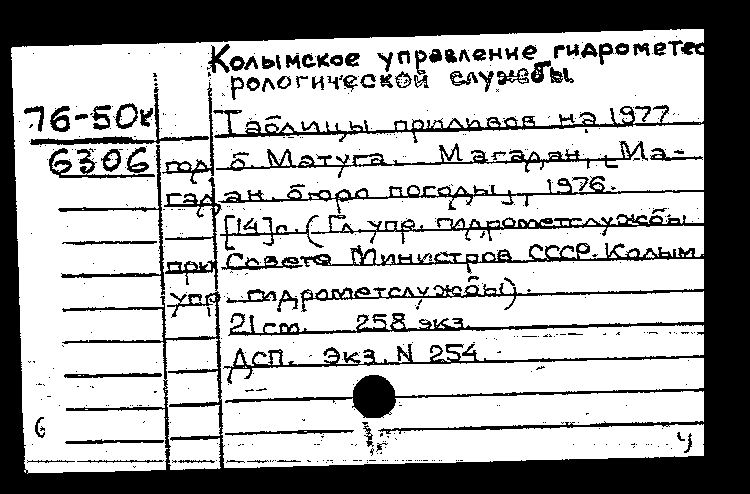 Колымское управление гидрометео
рологической службы.
76-50к Таблицы приливов на 1977
6306 год б. Матуга. Магадан, [Ма-
гадан. бюро погоды], 1976.
[14]с. (Гл. упр. гидрометслужбы
при Совете Министров СССР. Колым.
упр. гидрометслужбы).
21 cm. 258 экз.
ДСП. Экз. N 254.
6 ч